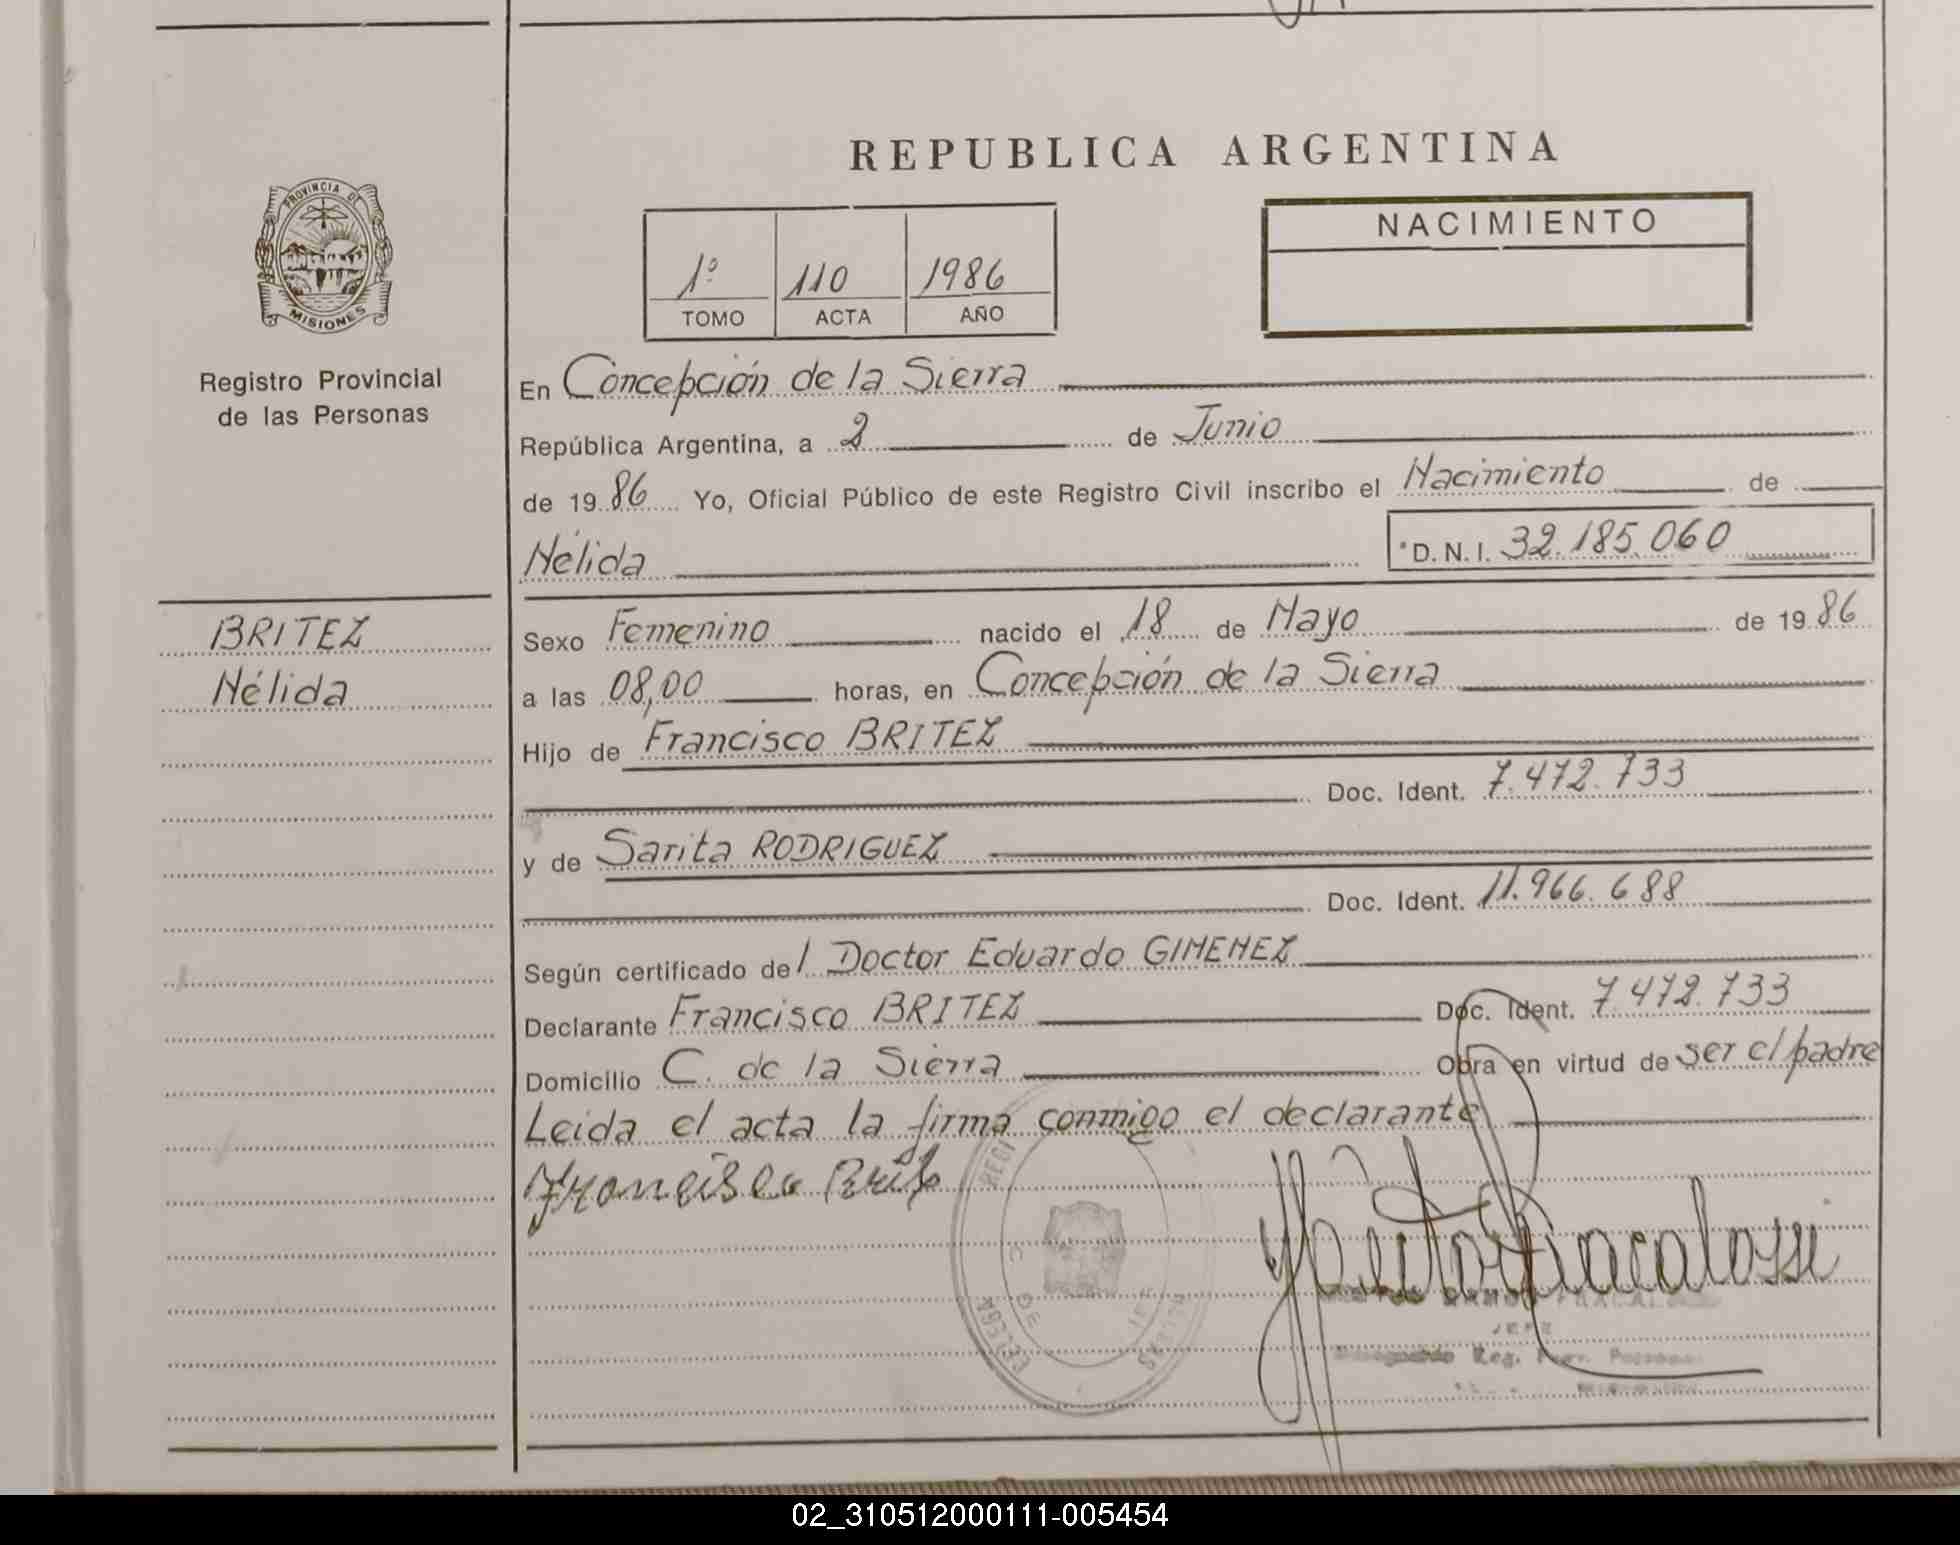 REPUBLICA ARGENTINA
PROVINCIA DE
MISIONES
Registro Provincial
de las Personas
1º 110 1986
TOMO ACTA AÑO
NACIMIENTO
En Concepción de la Sierra
República Argentina, a 2 de Junio
de 19 86 Yo, Oficial Público de este Registro Civil inscribo el Nacimiento de
Nélida
*D. N. I. 32.185.060
BRITEZ
Nélida
Sexo Femenino nacido el 18 de Mayo de 19 86
a las 08,00 horas, en Concepción de la Sierra
Hijo de Francisco BRITEZ
Doc. Ident. 7.472.733
y de Sarita RODRIGUEZ
Doc. Ident. 11.966.688
Según certificado del Doctor Eduardo GIMENEZ
Declarante Francisco BRITEZ Doc. Ident. 7.472.733
Domicilio C. de la Sierra Obra en virtud de ser el padre
Leida el acta la firma conmigo el declarante
Francisco
JEFE
Reg. Prov. Personas
02_310512000111-005454